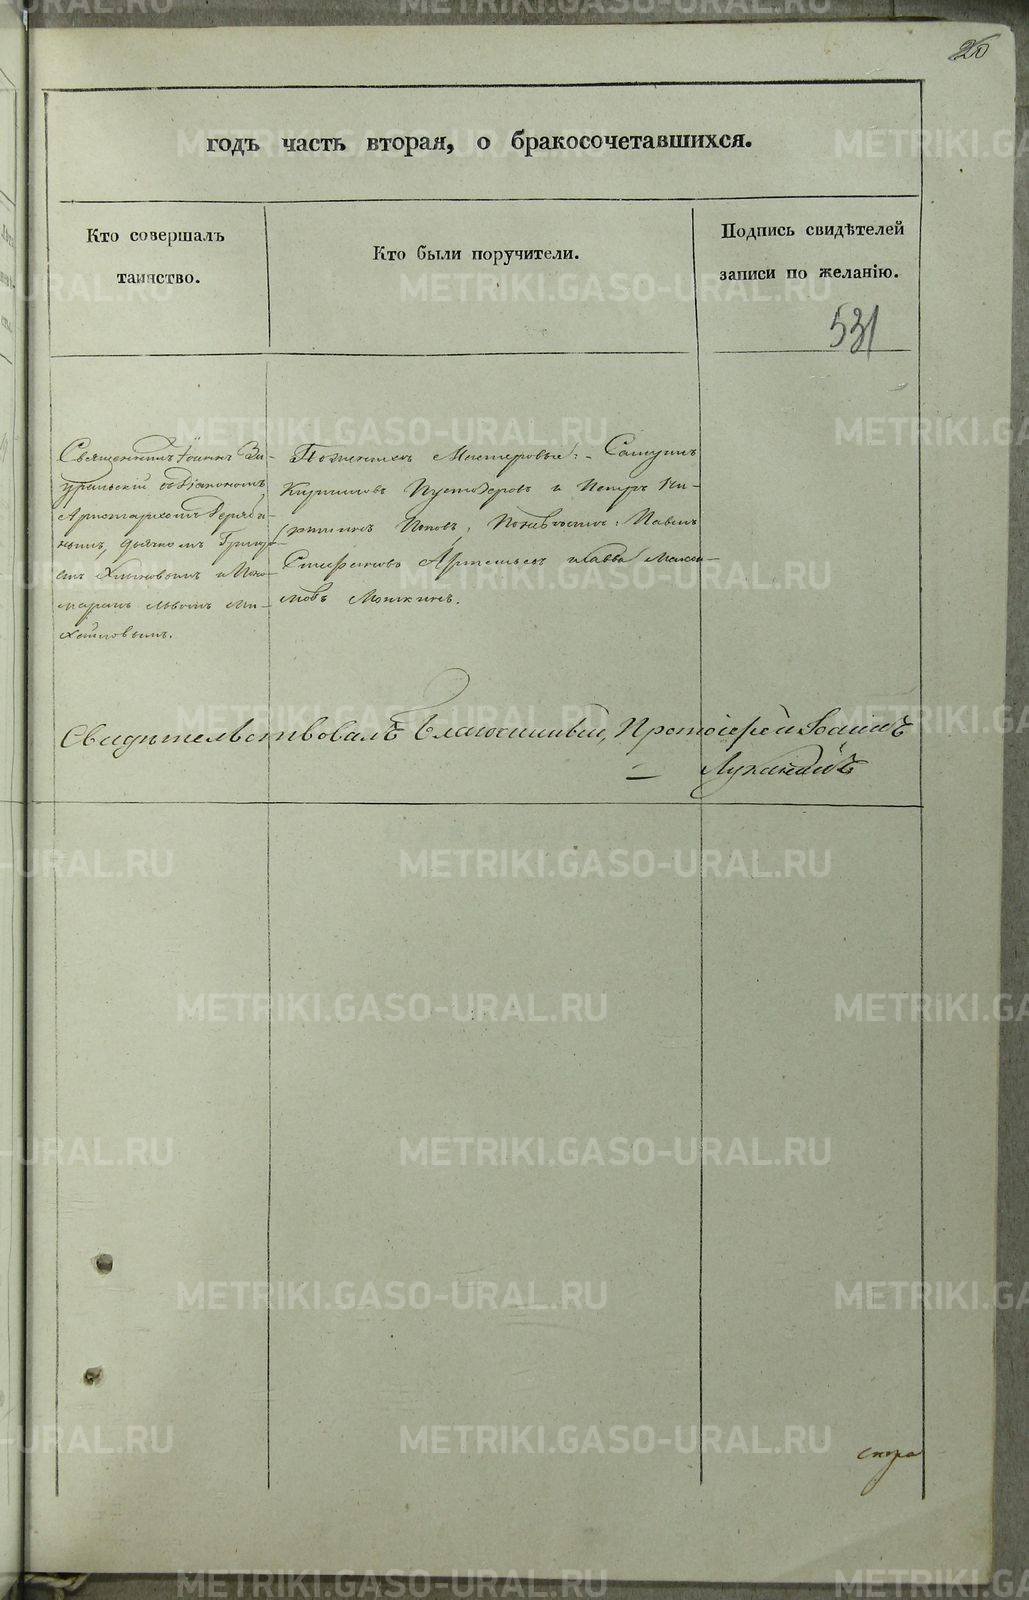 20
годъ часть вторая, о бракосочетавшихся.
Кто совершалъ
таинство.
Кто были поручители.
Подпись свидѣтелей
записи по желанію.
531
Священникъ Іоаннъ За-
уральскій съ Діакономъ
Аристархомъ
дьячкомъ Григор-
и Поно-
марем Львомъ Ми-
хайловымъ.
По женихѣ Мастеровые: Самуилъ
Пустозеровъ и Петръ Ки-
Поповъ, По невѣстѣ: Павелъ
Стефановъ Артемьевъ и Савва Макси-
мовъ Мошкинъ.
Свидѣтельствовалъ Благочинный, Протоіерей Іоаннъ
Луканинъ
METRIKI.GASO-URAL.RU